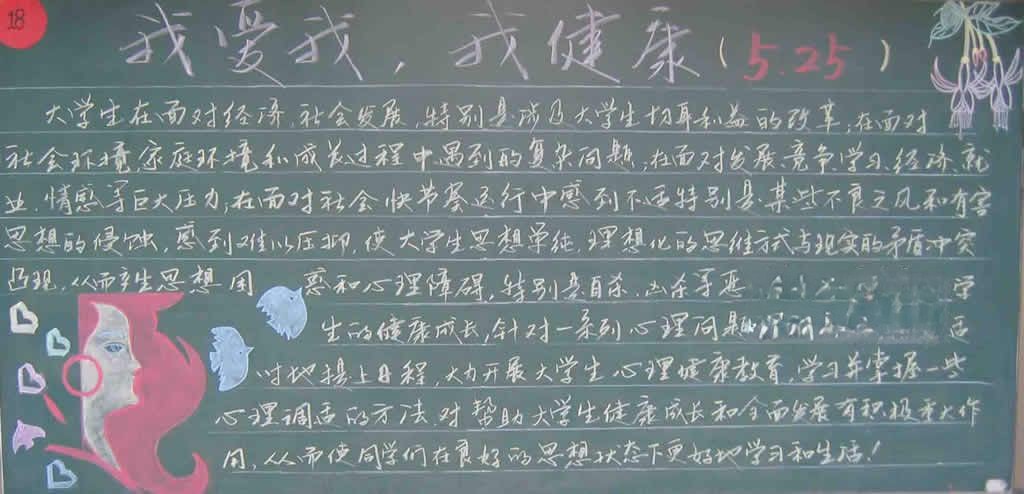 18
我爱我，我健康(5.25)
大学生在面对经济、社会发展,特别是涉及大学生切身利益的改革,在面对
社会环境、家庭环境和成长过程中遇到的复杂问题,在面对发展、竞争、学习、经济、就
业、情感等巨大压力,在面对社会快节奏运行中感到不适特别是某些不良之风和有害
思想的侵蚀,感到难以压抑,使大学生思想单纯、理想化的思维方式与现实的矛盾冲突
凸现,从而产生思想困惑和心理障碍,特别是自杀、凶杀等恶 学
生的健康成长,针对一系列心理问题 适
时地提上日程,大力开展大学生心理健康教育,学习并掌握一些
心理调适的方法.对帮助大学生健康成长和全面发展有积极重大作
用,从而使同学们在良好的思想状态下更好地学习和生活!